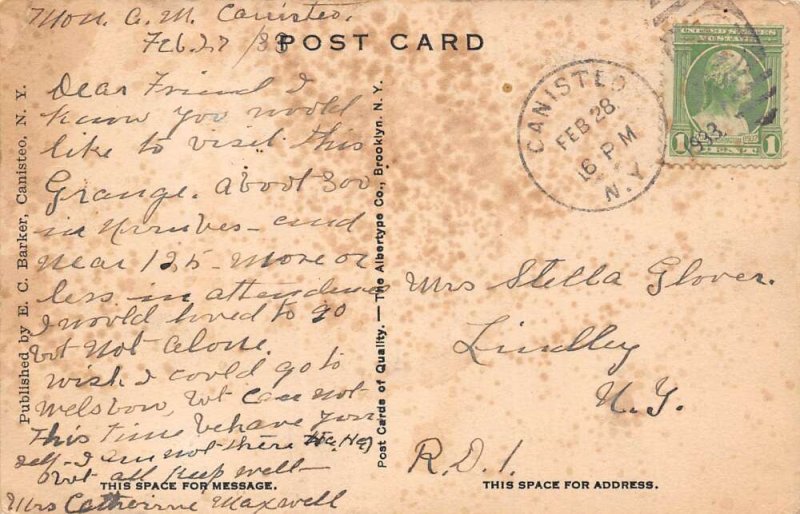 Mon. A. M. Canisteo,
Feb. 27 /33
POST CARD
Dear Friend I
know you would
like to visit this
Grange. about 300
in numbers - and
near 125 - more or
less in attendence
I would loved to go
but not alone.
wish I could go to
Welsbow, but can not
This time behave your
self - I am not there Ha, Ha)
but all keep well -
Mrs Catherine Maxwell
THIS SPACE FOR MESSAGE.
Published by E. C. Barker, Canisteo, N. Y.
Post Cards of Quality. — The Albertype Co., Brooklyn, N. Y.
CANISTEO
FEB 28
6 PM
N.Y.
1933
UNITED STATES
POSTAGE
1 CENT 1
Mrs Stella Glover.
Lindley
N. Y.
R. D. 1.
THIS SPACE FOR ADDRESS.